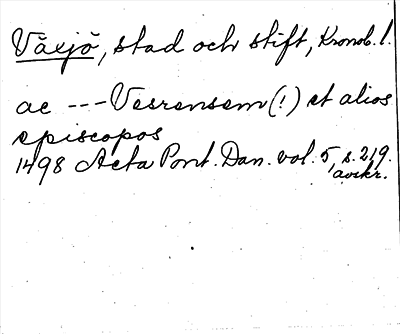 Växjö, stad och stift, Kronob. l.
ac --- Vesrensem(!) et alios
episcopos
1498 Acta Pont. Dan. vol. 5, s. 219.
avskr.